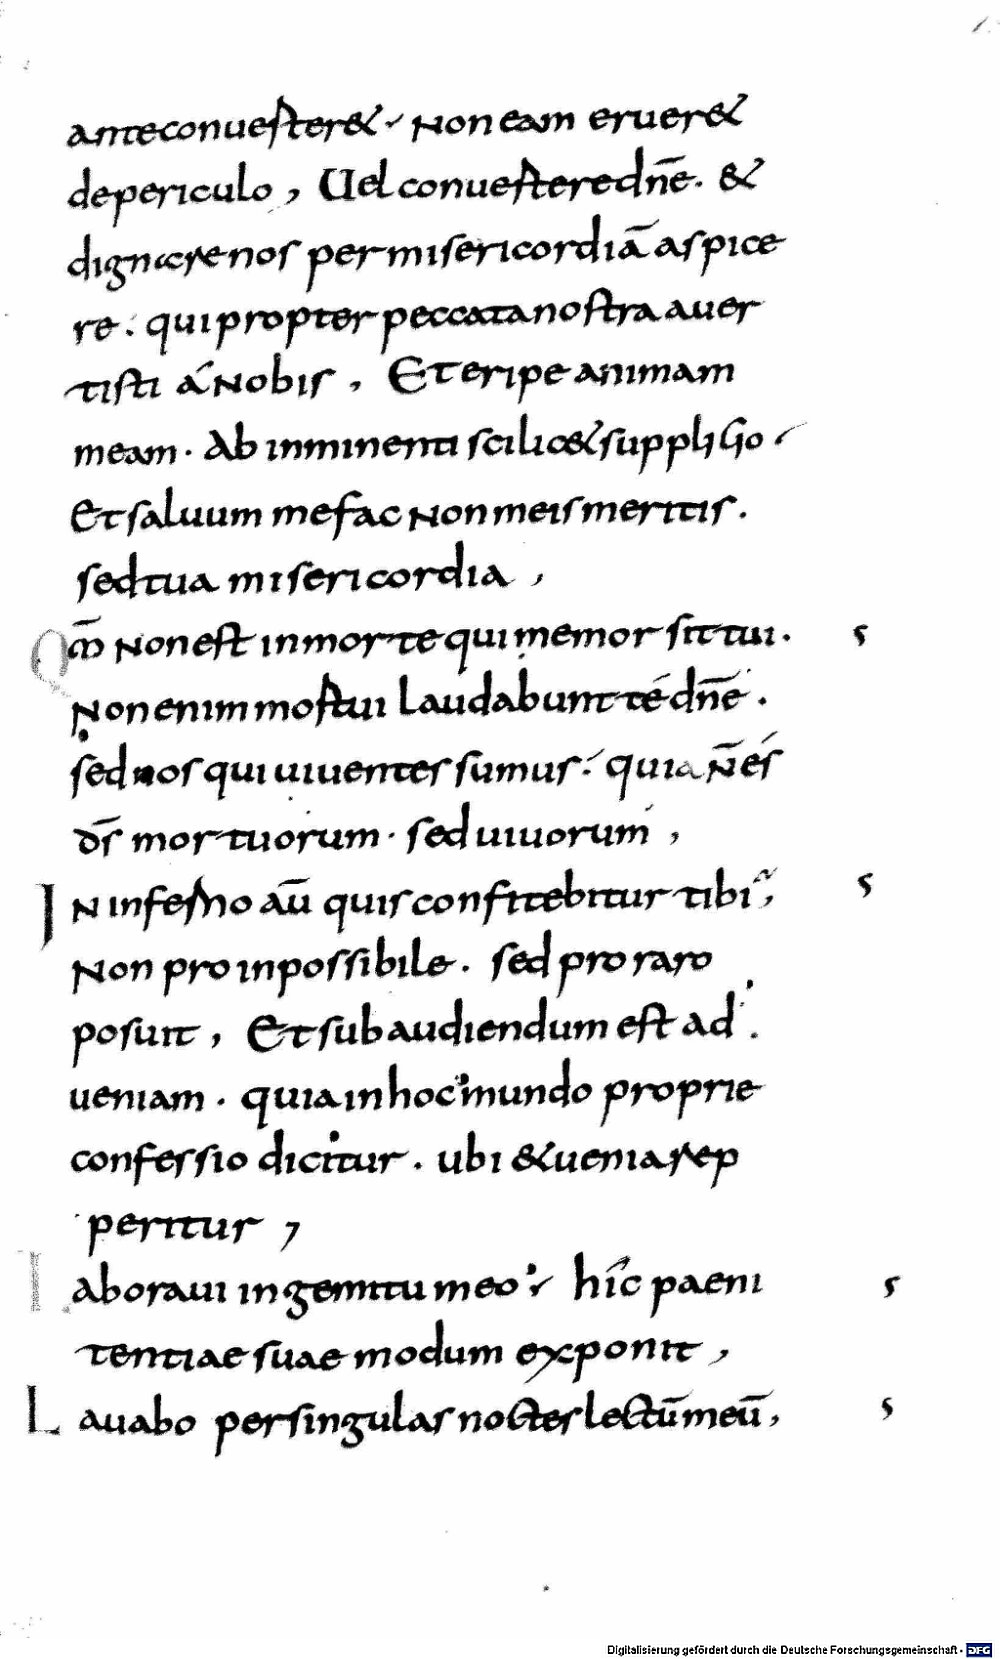 ante conuerteret. Non eam erueret
de periculo, Uel conuertere dn̄e. &
dignare nos per misericordiā aspice
re. qui propter peccata nostra auer
tisti á nobis, Et eripe animam
meam. Ab inminenti scilic& supplicio
Et saluum me fac non meis meritis.
sed tua misericordia,
Qm̄ non est in morte qui memor sit tui. s
Non enim mortui laudabunt té dn̄e.
sed nos qui uiuentes sumus. quia n̄ és
ds̄ mortuorum. sed uiuorum,
In inferno aū quis confitebitur tibi; s
Non pro inpossibile. sed pro raro
posuit, Et subaudiendum est ad
ueniam. quia in hoc mundo proprie
confessio dicitur. ubi & uenia rep
peritur,
Laboraui in gemitu meo. híc paeni s
tentiae suae modum exponit,
Lauabo per singulas noctes lectū meū, s
Digitalisierung gefördert durch die Deutsche Forschungsgemeinschaft - DFG